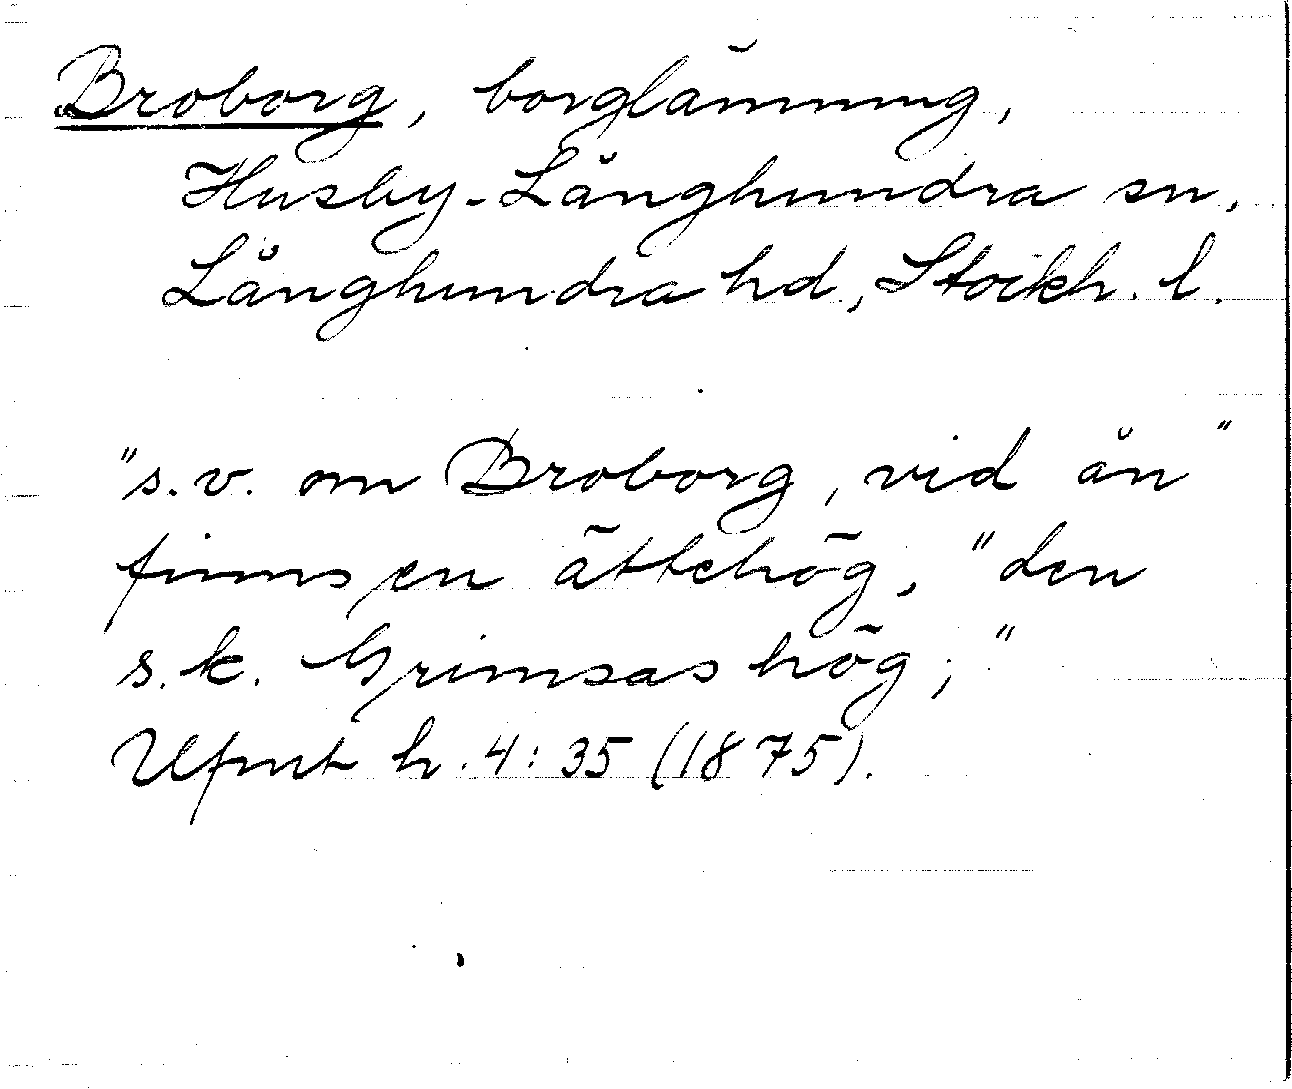 Broborg, borglämning,
Husby-Långhundra sn,
Långhundra hd, Stockh. l.
"s.v. om Broborg, vid ån"
finns en ättehög, "den
s.k. Grimsas hög;"
Ufmt h. 4:35 (1875).